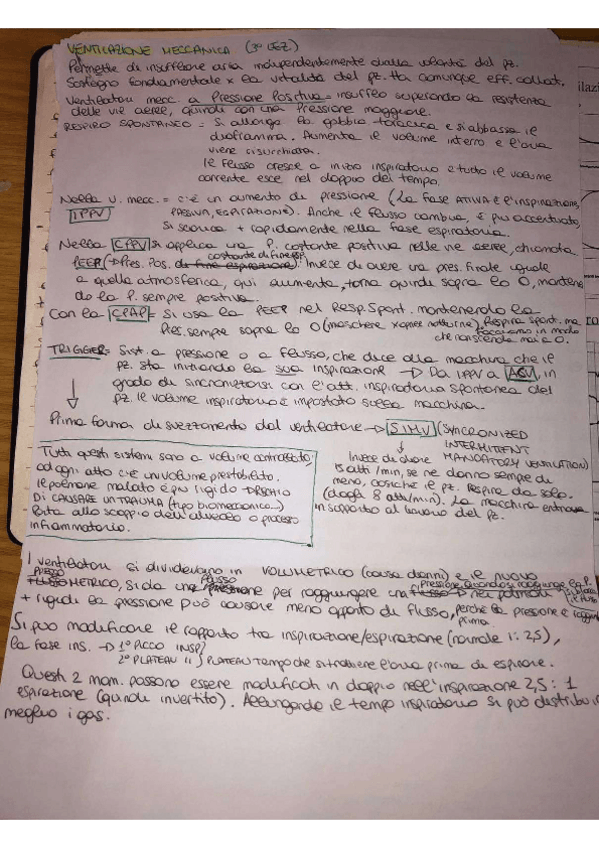 VENTILAZIONE MECCANICA (3° LEZ.)
Permette di insufflare aria indipendentemente dalla volontà del pz.
Sostegno fondamentale x la vitalità del pz. Ha comunque eff. collat.
Ventilatori mecc. a Pressione Positiva = insuffleo superando la resistenza
delle vie aeree, quindi con una Pressione maggiore.
RESPIRO SPONTANEO = Si allunga la gabbia toracica e si abbassa il
diaframma. Aumenta il volume interno e l'aria
viene risucchiata.
Il flusso cresce a inizio inspiratorio e tutto il volume
corrente esce nel doppio del tempo.
Nella V. mecc. = c'è un aumento di pressione (La fase ATTIVA è l'inspirazione,
IPPV PASSIVA, ESPIRAZIONE). Anche il flusso cambia, è più accentuato,
Si scarica + rapidamente nella fase espiratoria.
Nella CPPV si applica una P. costante positiva nelle vie aeree, chiamata
PEEP (→ Pres. Pos. costante di fine esp.). Invece di avere una pres. finale uguale
a quella atmosferica, qui aumenta, torna quindi sopra lo 0, mantenen
do la P. sempre positiva.
Con la CPAP = Si usa la PEEP nel Resp. Spont. mantenendo la
Pres. sempre sopra lo 0 (maschere x apnee notturne). Respira spont. ma
facciamo in modo
che non scenda mai a 0.
TRIGGER = Sist. a pressione o a flusso, che dice alla macchina che il
pz. sta iniziando la sua inspirazione → Da IPPV a ACV, in
grado di sincronizzarsi con l'att. inspiratoria spontanea del
pz. Il volume inspiratorio è impostato sulla macchina.
Prima forma di svezzamento dal ventilatore → SIMV (SYNCRONIZED
INTERMITTENT
MANDATORY VENTILATION)
Invece di dare
15 atti/min, se ne danno sempre di
meno, cosicché il pz. respira da solo.
(dagli 8 atti/min). La macchina entra
in supporto al lavoro del pz.
Tutti questi sistemi sono a volume controllato,
ad ogni atto c'è un volume prestabilito.
Il polmone malato è più rigido → RISCHIO
DI CAUSARE UN TRAUMA (tipo biomeccanico...)
Porta allo scoppio dell'alveolo o processo
infiammatorio.
I ventilatori si dividevano in VOLUMETRICO (causa danni) e il nuovo
PRESSOMETRICO, si dà una per raggiungere una
+ rigidi la pressione può causare meno apporto di flusso, perché la pressione è
prima.
Si può modificare il rapporto tra inspirazione/espirazione (normale 1:2,5),
la fase ins. → 1° PICCO INSP.
2° PLATEAU (PLATEAU tempo che si trattiene l'aria prima di espirare.
Questi 2 mom. possono essere modificati in doppio nell'inspirazione 2,5 : 1
espirazione (quindi invertito). Allungando il tempo inspiratorio si può distribui
meglio i gas.